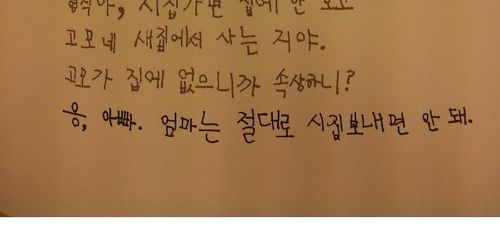 형식아, 시집가면 집에 안 오고
고모네 새집에서 사는 거야.
고모가 집에 없으니까 속상하니?
응, 아빠. 엄마는 절대로 시집보내면 안 돼.